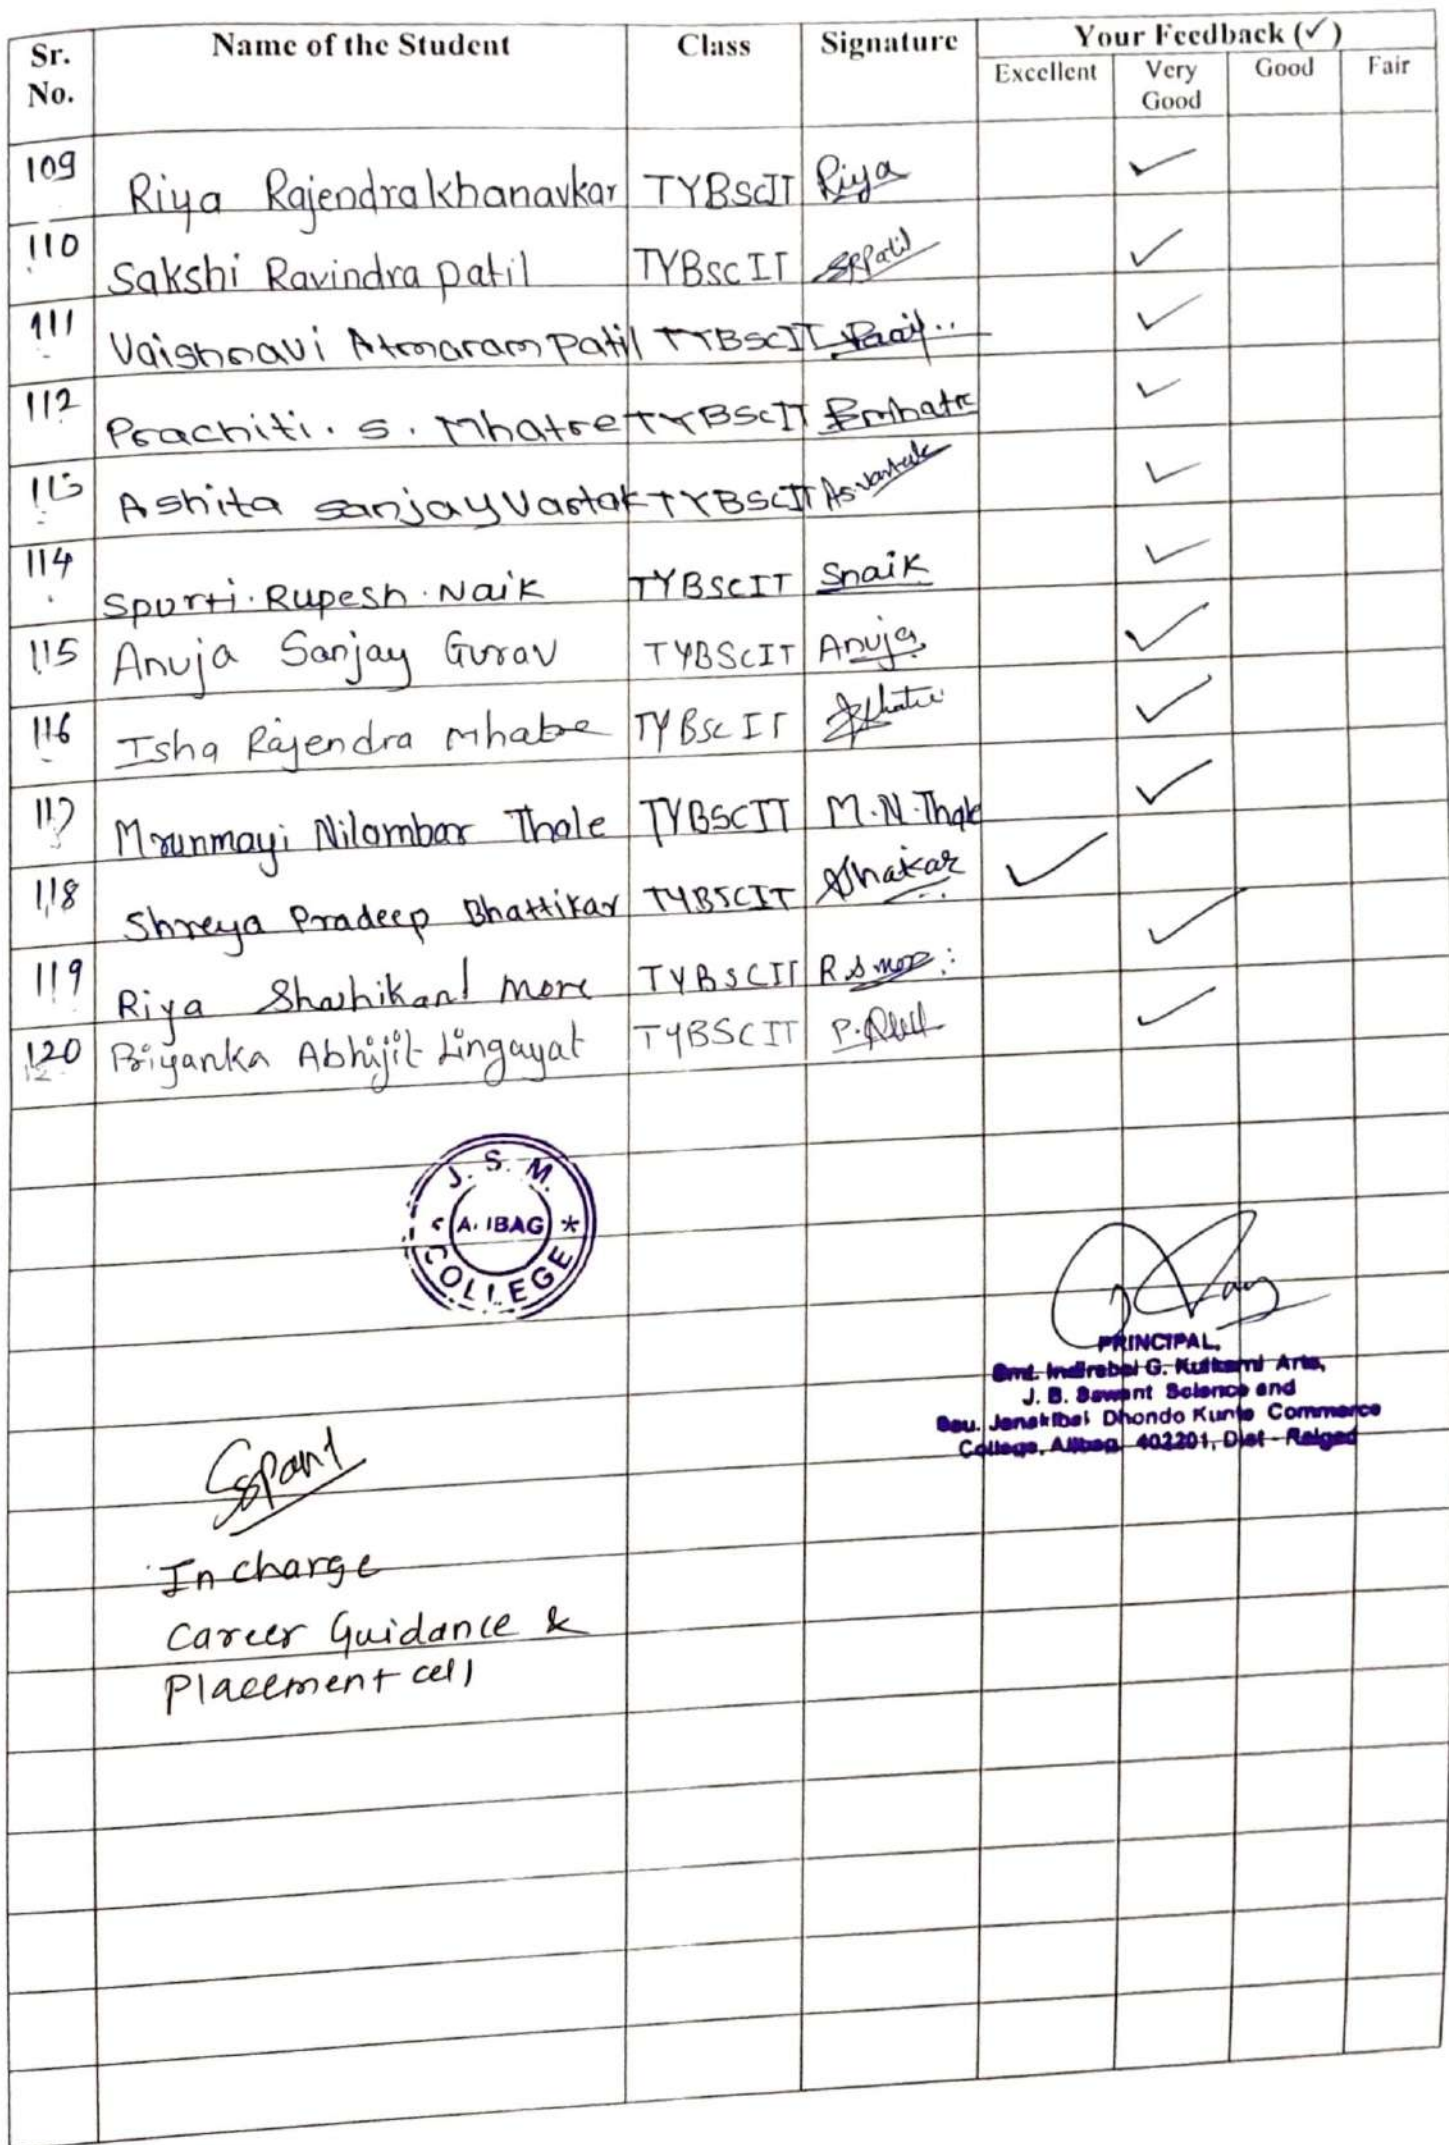 Sr. No. Name of the Student Class Signature Your Feedback (✓)
Excellent Very Good Good Fair
109 Riya Rajendra Khanavkar TYBScIT Riya ✓
110 Sakshi Ravindra patil TYBSC IT SRPatil ✓
111 Vaishnavi Atmaram patil TYBSCIT ✓
112 Prachiti. S. Mhatre TYBSCIT Pmhatre ✓
113 Ashita sanjay Vartak TYBSCIT As.Vartak ✓
114 Spurti. Rupesh. Naik TYBSCIT Snaik ✓
115 Anuja Sanjay Gurav TYBSCIT Anuja ✓
116 Isha Rajendra Mhatre TYBSC IT ✓
117 Mrunmayi Nilambar Thale TYBSCIT M.N.Thale ✓
118 Shreya Pradeep Bhattikar TYBSCIT ✓
119 Riya Shashikant more TYBSCIT R.S more ✓
120 Priyanka Abhijit Lingayat TYBSCIT ✓
J. S. M.
A. IBAG *
COLLEGE
PRINCIPAL,
Smt. Indirabai G. Kulkarni Arts,
J. B. Sawant Science and
Sau. Janakibai Dhondo Kunte Commerce
College, Alibag 402201, Dist - Raigad
SSPant
In charge
Career Guidance &
Placement cell